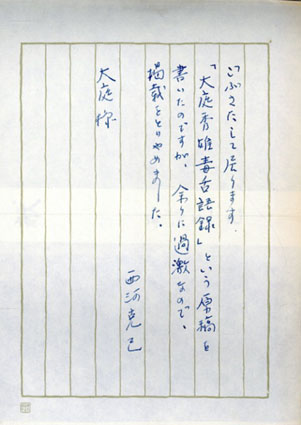 ごぶさたして居ります。
「大庭秀雄毒舌語録」という原稿を
書いたのですが、余りに過激なので、
掲載をとりやめました。
大庭様
西河克己